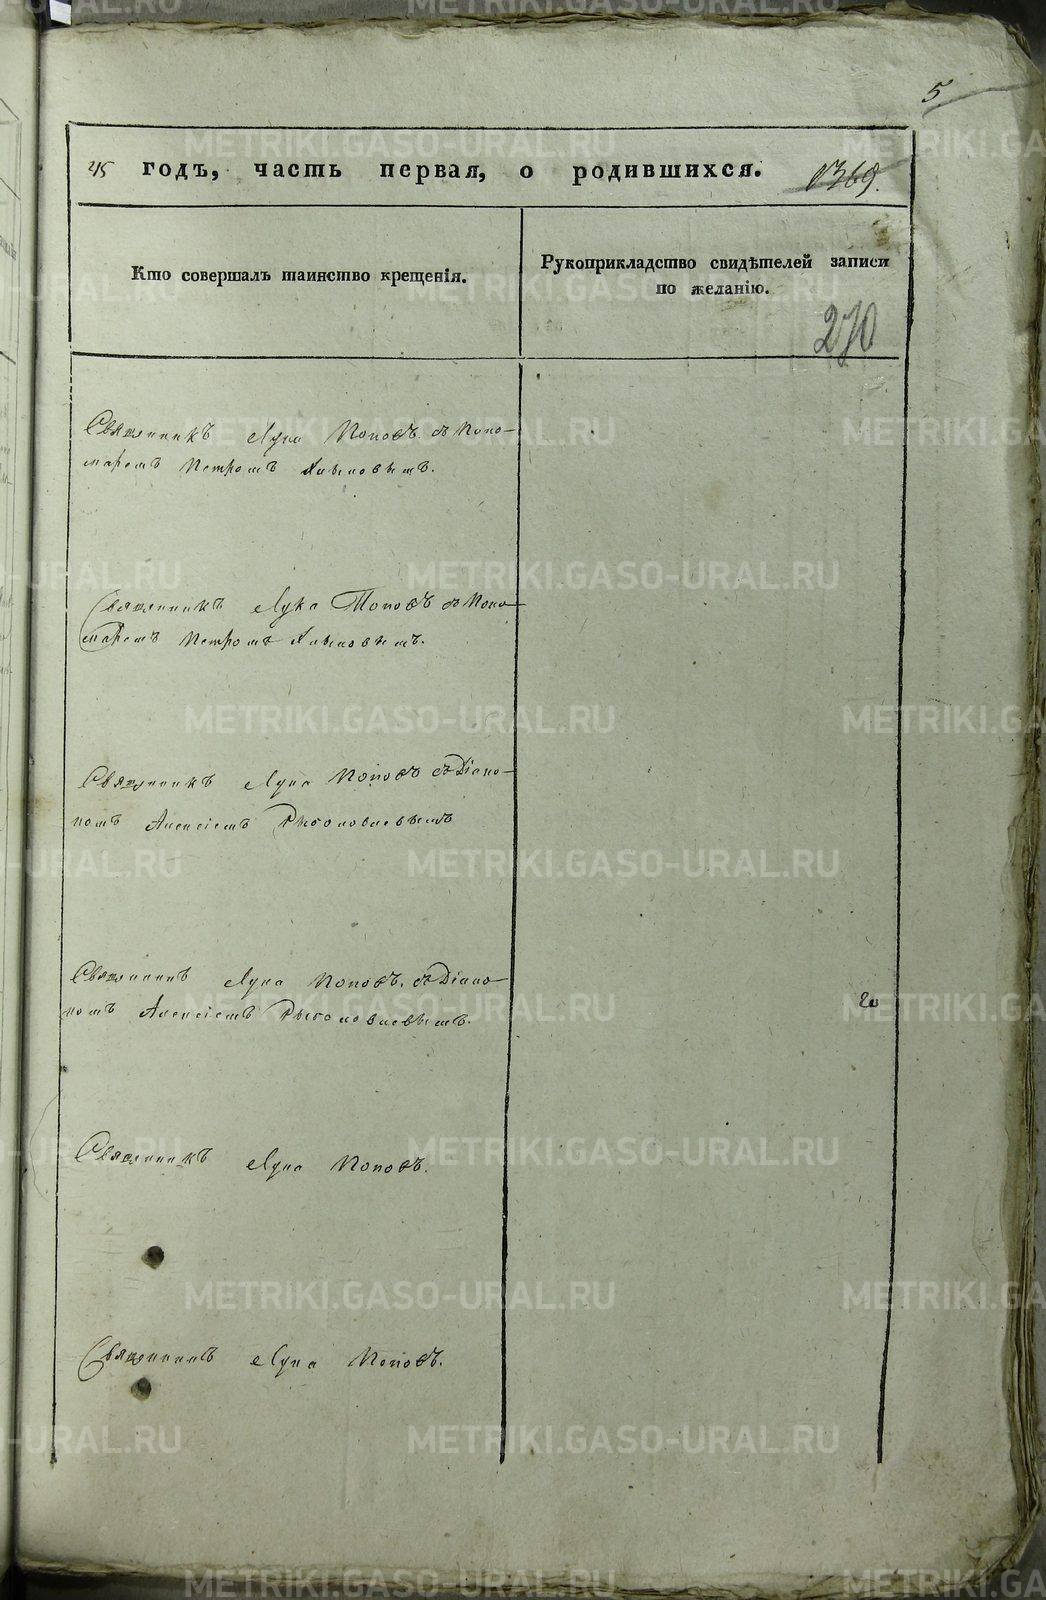 5
45 годъ, часть первая, о родившихся. 1369.
Кто совершалъ таинство крещенія.
Рукоприкладство свидѣтелей записи
по желанію.
270
Священникъ Лука Поповъ съ Поно-
маремъ Петромъ
Священникъ Лука Поповъ съ Поно-
маремъ Петромъ
Священникъ Лука Поповъ съ Діако-
номъ Алексіемъ
Священникъ Лука Поповъ. съ Діако-
номъ Алексіемъ
Священникъ Лука Поповъ.
Священникъ Лука Поповъ.
METRIKI.GASO-URAL.RU